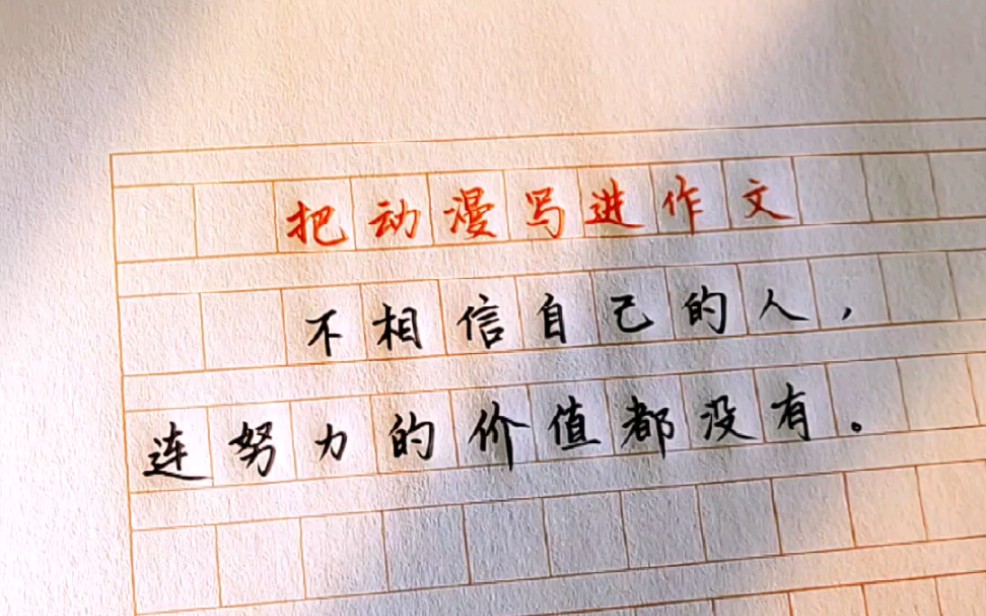 把动漫写进作文
不相信自己的人，
连努力的价值都没有。